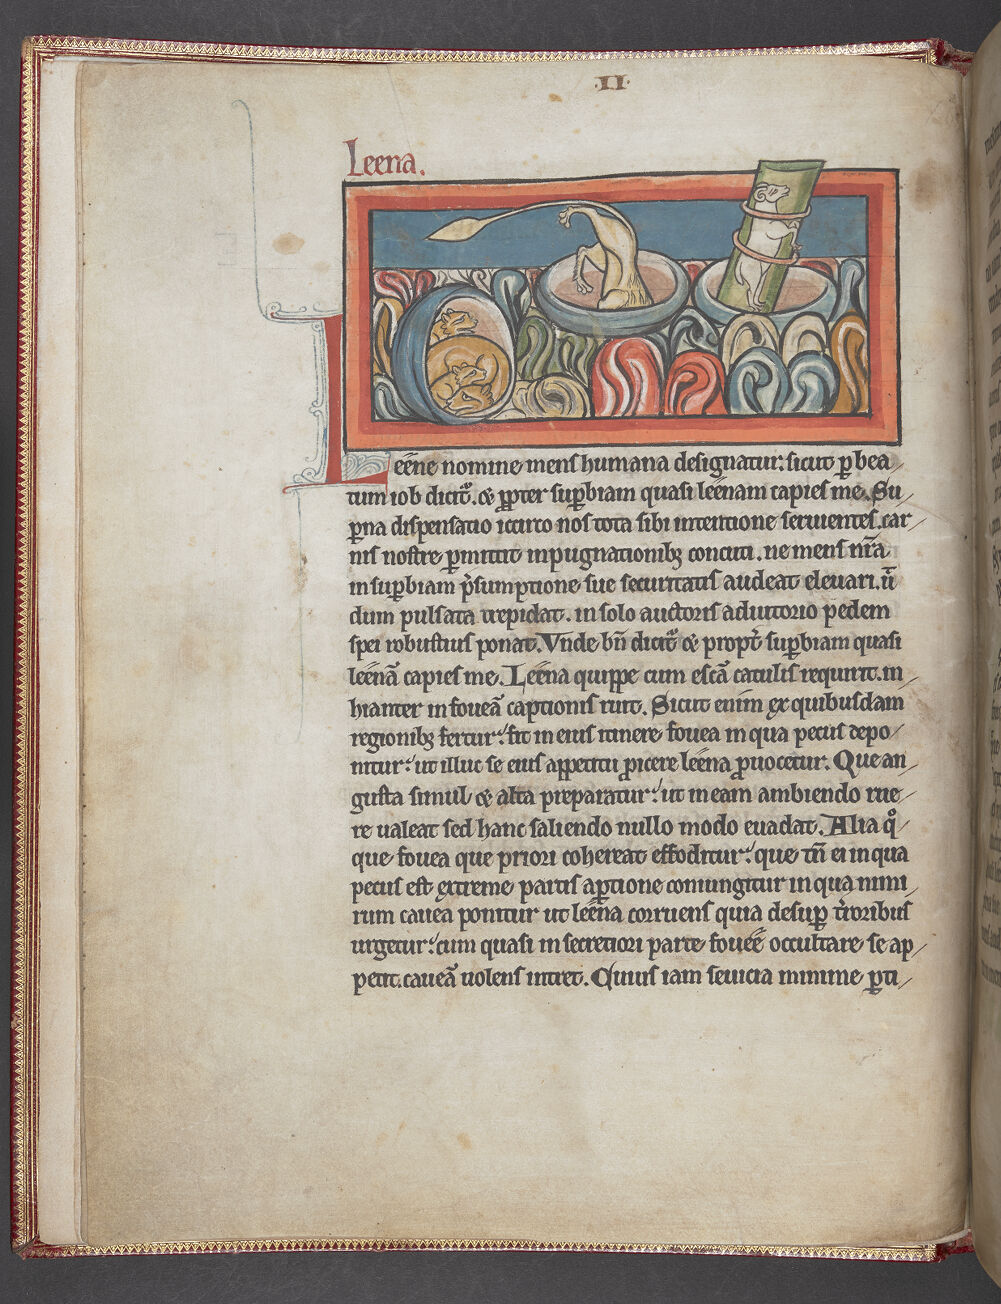 ·II·
Leena.
Leene nomine mens humana designatur: sicut p bea
tum iob dicit᷑. & ꝓpter supbiam quasi leenam capies me. Su
pna dispensatio iccirco nos tota sibi intentione seruientes. car
nis nostre pmittit inpugnationibꝫ concuti. ne mens nr̄a
in supbiam p̄sumptione sue securitatis audeat eleuari. ū
dum pulsata trepidat. in solo auctoris adiutorio pedem
spei robustius ponat. Vnde bn̄ dicit᷑ & propt̄ supbiam quasi
leenā capies me. Leena quippe cum escā catulis requirit. in
hianter in foueā captionis ruit. Sicut enim ex quibusdam
regionibꝫ fertur: fit in eius itinere fouea in qua pecus depo
nitur: ut illuc se eius appetitu ꝓicere leena ꝓuocetur. Que an
gusta simul & alta preparatur: ut in eam ambiendo rue
re ualeat sed hanc saliendo nullo modo euadat. Alia qͦ
que fouea que priori cohereat effoditur: que tn̄ ei in qua
pecus est extreme partis aptione coniungitur in qua nimi
rum cauea ponitur ut leena corruens quia desup t̄roribus
urgetur: cum quasi in secretiori parte fouee occultare se ap
petit. caueā uolens intret. Cuius iam seuicia minime pti